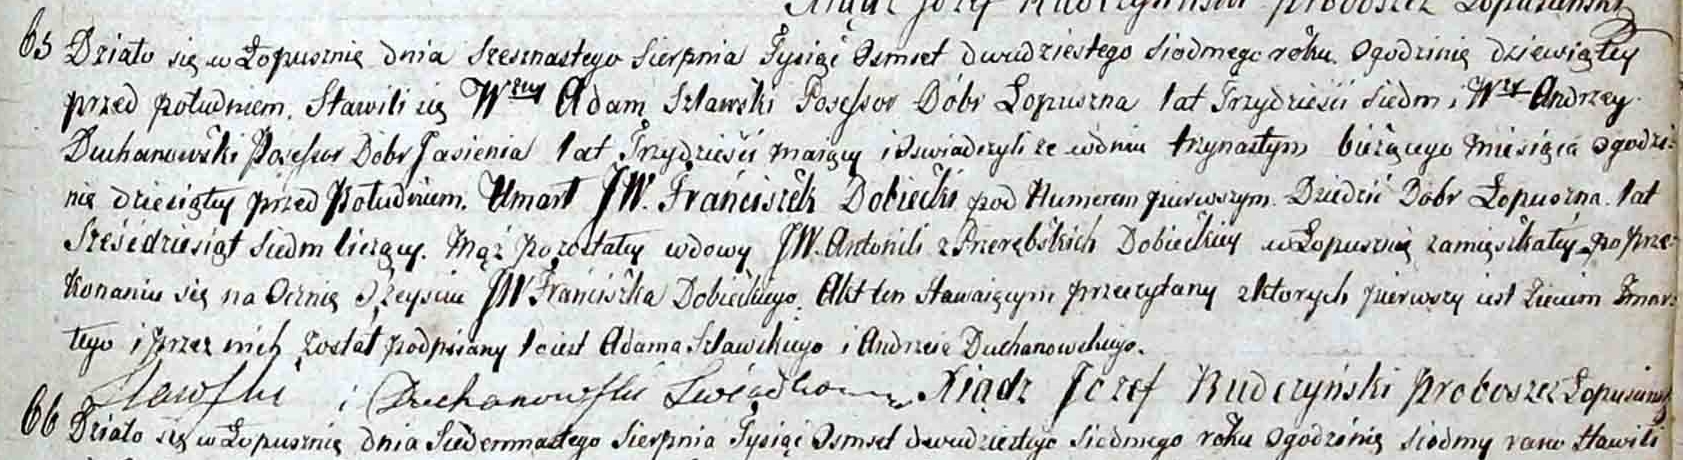 Xiądz Józef Rudczyński Proboszcz Łopuszański
65 Działo się w Łopusznie dnia Szesnastego Sierpnia Tysiąć Osmset dwudziestego siodmego roku. O godzinie dziewiątey
przed południem. Stawili się Wzny Adam Szławski Possessor Dóbr Łopuszna lat Trzydzieści siedm, i Wzy Andrzey
Duchanowski Possessor Dobr Jasienia lat Trzydzieści maiący i Oswiadczyli ze w dniu trzynastym bieżącego Miesiąca o godzi-
nie dziesiątey przed Południem. Umarł JW. Franciszek Dobiecki pod Numerem pierwszym. Dziedzić Dobr Łopuszna. lat
Sześćdziesiąt siedm liczący. Mąż pozostałey wdowy JW. Antonili z Przerębskich Dobieckiey w Łopusznie zamięszkałey po prze-
konaniu się na Ocznie o Zeysciu JW Franciszka Dobieckiego. Akt ten stawaiącym przeczytany z ktorych pierwszy iest Zięciem Zmar-
łego i przez nich został podpisany to iest Adama Szławskiego i Andrzeia Duchanowskiego.
Sławski i Duchanowski Swiadkowie Xiądz Józef Rudczyński Proboszcz Łopuszański
66 Działo się w Łopusznie dnia Siedemnastego Sierpnia Tysiąć Osmset dwudziestego siodmego roku O godzinie siodmy rano stawili